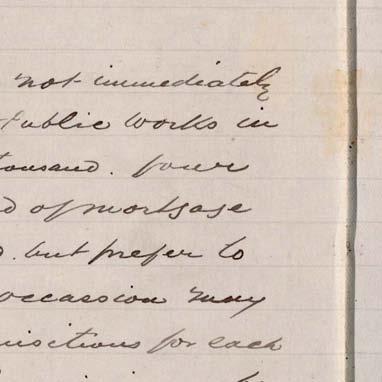 not immediately
Public Works in
thousand. four
d of mortgage
d. but prefer to
occassion may
uisitions for each